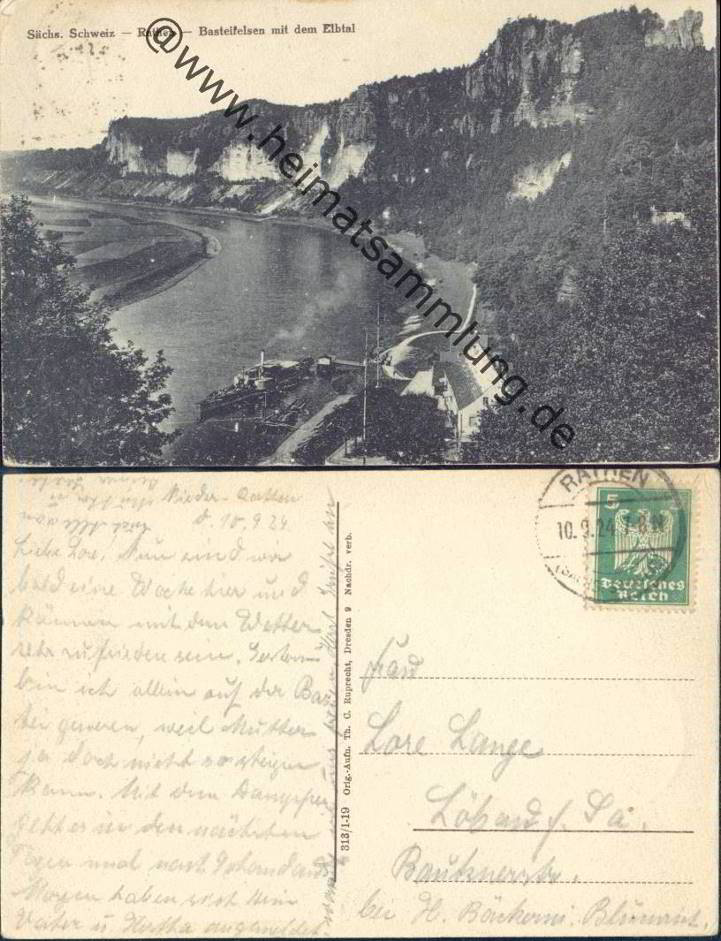 Sächs. Schweiz — Rathen — Basteifelsen mit dem Elbtal
@www.heimatsammlung.de
Nieder-Rathen
d. 10.9.24.
Liebe Lore. Nun sind wir
bald eine Woche hier und
können mit dem Wetter
sehr zufrieden sein. Gestern
bin ich allein auf der Bas-
tei gewesen, weil Mutter
ja doch nicht so steigen
kann. Mit dem Dampfer
geht es in den nächsten
Tagen mal nach Schandau.
Morgen haben sich
Vater u. Hertha angemeldet.
313/1-19 Orig.-Aufn. Th. C. Ruprecht, Dresden 9 Nachdr. verb.
RATHEN
10.9.24. 7-8 N
5
Deutsches
Reich
Frau
Lore Lange
Löbau i. Sa.
Bautznerstr.
bei H. Bäckermstr.